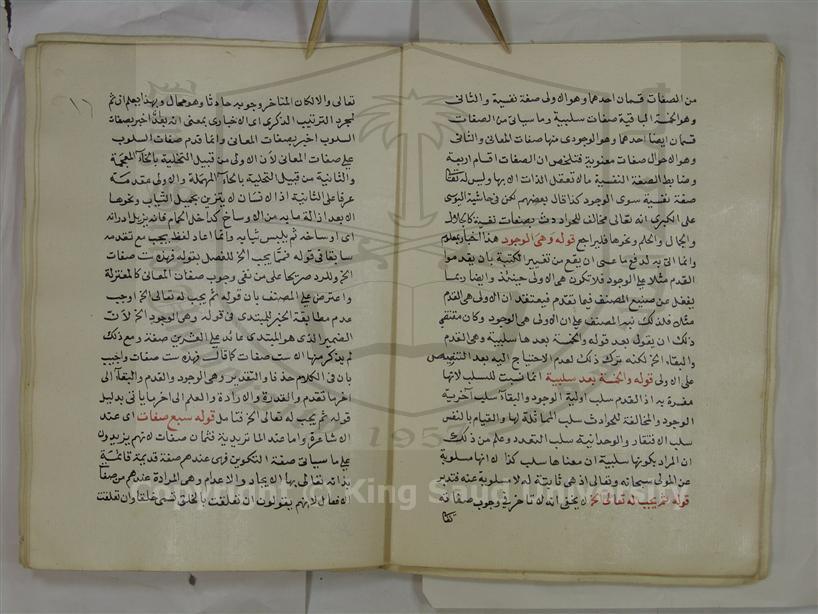 من الصفات قسمان احدهما وهو الاولى صفة نفسية والثانى
وهو الخمسة الباقية صفات سلبية وما سيأتى من الصفات
قسمان ايضا احدهما وهو الوجودى منها صفات المعانى والثانى
وهو الاحوال صفات معنوية فتلخص ان الصفات اقسام اربعة
وضابط الصفة النفسية مالا تعقل الذات الا بها وليس له تعالى
صفة نفسية سوى الوجود كذا قال بعضهم لكن فى حاشية اليوسى
على الكبرى انه تعالى مخالف للحوادث بصفات نفسية كالجلال
والجمال والحلم ونحوها فليراجع قوله وهى الوجود هذا اخبار بمعلوم
وانما اتى به لدفع ما عسى ان يقع من تغيير الكتبة بان يقدموا
القدم مثلا على الوجود فلا تكون هى الاولى حينئذ وايضا ربما
يغفل عن صنيع المصنف فيما تقدم فيعتقد ان الاولى هى القدم
مثلا فلذلك نبه المصنف على ان الاولى هى الوجود وكان مقتضى
ذلك ان يقول بعد قوله والخمسة بعدها سلبية وهى القدم
والبقاء الخ لكنه ترك ذلك لعدم الاحتياج اليه بعد التنصيص
على الاولى قوله والخمسة بعد سلبية انما نسبت للسلب لانها
مفسرة به اذ القدم سلب اولية الوجود والبقاء سلب آخرية
الوجود والمخالفة للحوادث سلب المماثلة لها والقيام بالنفس
سلب الافتقار والوحدانية سلب التعدد وعلم من ذلك
ان المراد بكونها سلبية ان معناها سلب كذا لا انها مسلوبة
عن المولى سبحانه وتعالى اذ هى ثابتة له لا مسلوبة عنه فتدبر
قوله ثم يجب له تعالى الخ لا يخفى انه لا تأخر فى وجوب صفاته
تعالى والا لكان المتاخر وجوبه حادثا وهو محال وبهذا يعلم ان ثم
لمجرد الترتيب الذكرى اى الاخبارى بمعنى انه بعد ان اخبر بصفات
السلوب اخبر بصفات المعانى وانما قدم صفات السلوب
على صفات المعانى لان الاولى من قبيل التخلية بالخاء المعجمة
والثانية من قبيل التحلية بالحاء المهملة والاولى مقدمة
عرفا على الثانية اذ الانسان لا يتزين بجميل الثياب ونحوها
الا بعد ازالة ما به من الاوساخ كداخل الحمام فانه يزيل ادرانه
اى اوساخه ثم يلبس ثيابه وانما اعاد لفظ يجب مع تقدمه
سابقا فى قوله فمما يجب الخ للفصل بقوله فهذه ست صفات
الخ وللرد صريحا على من نفى وجوب صفات المعانى كالمعتزلة
واعترض على المصنف بان قوله ثم يجب له تعالى الخ اوجب
عدم مطابقة الخبر للمبتدى فى قوله وهى الوجود الخ لان
الضمير الذى هو المبتدى عائد على العشرين صفة ومع ذلك
لم يذكر منها الا ست صفات كما قال فهذه ست صفات واجيب
بان فى الكلام حذفا والتقدير وهى الوجود والقدم والبقاء الى
آخر ما تقدم والقدرة والارادة والعلم الى آخر ما يأتى بدليل
قوله ثم يجب له تعالى الخ فتامل قوله سبع صفات اى عند
الاشاعرة واما عند الماتريدية فثمان صفات لانهم يزيدون
على ما سيأتى صفة التكوين فهى عندهم صفة قديمة قائمة
بذاته تعالى بها الايجاد والاعدام وهى المرادة عندهم من صفات
الافعال لانهم يقولون ان تعلقت بالخلق تسمى خلقا وان تعلقت
١٦
Copyright © King Saud University
1957